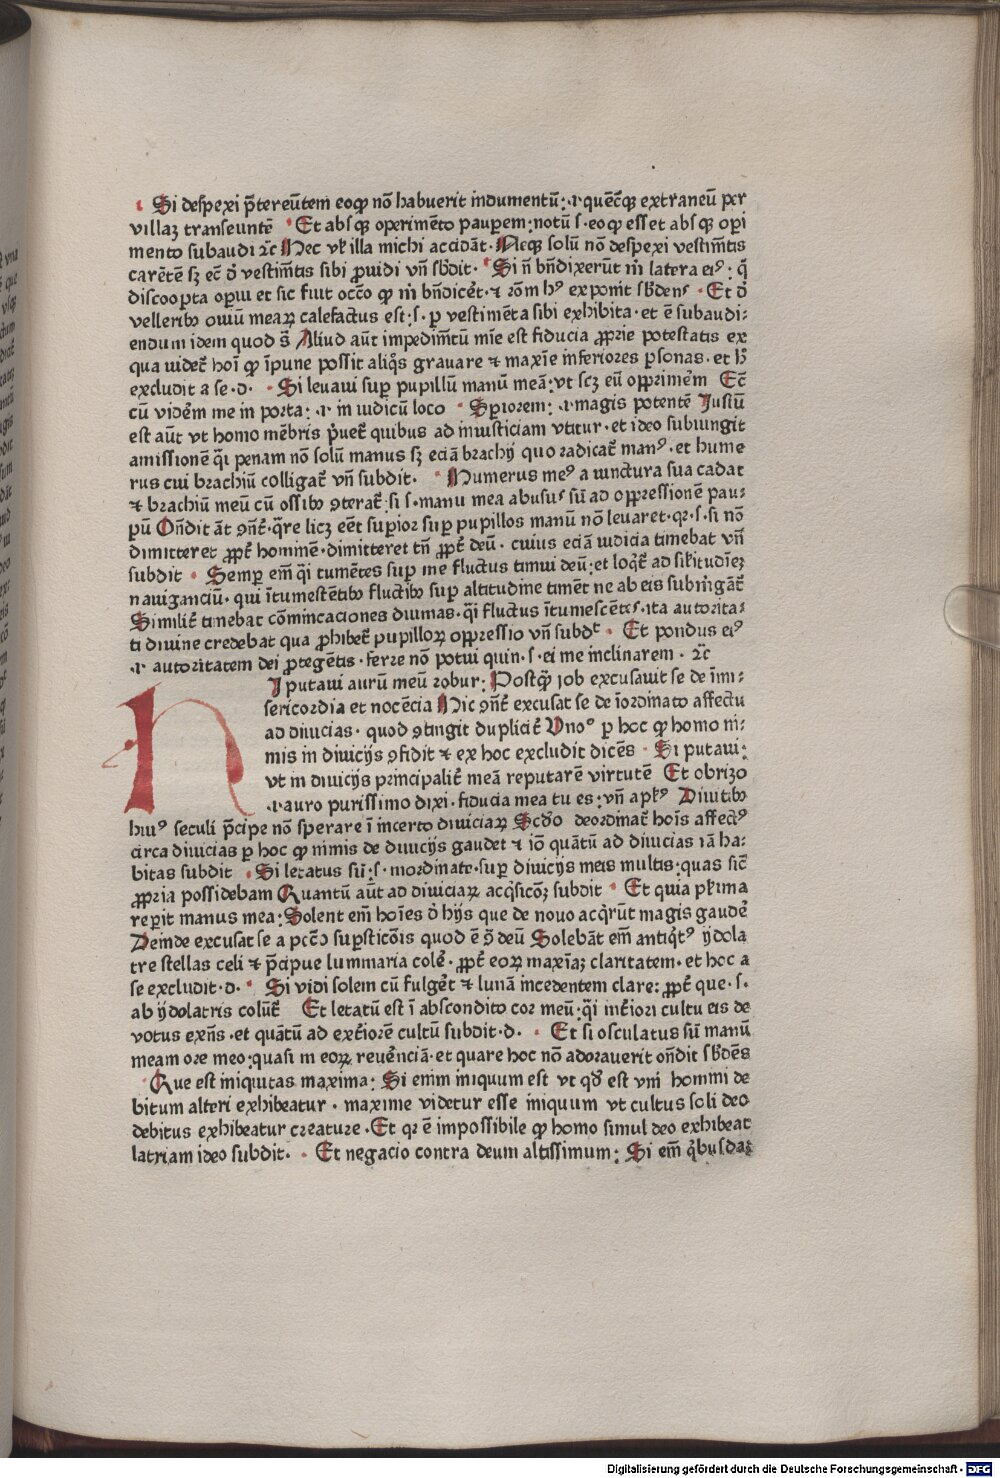 Si despexi p̄tereūtem eoꝙ nō habuerit indumentū: .i. quēcūqꝫ extraneū per
villaꝫ transeuntē Et absqꝫ operimēto pauꝑem: notū s. eoꝙ esset absqꝫ oꝑi
mento subaudi ⁊c̄ Nec vł illa michi accidāt. Neqꝫ solū nō despexi vestim̄tis
carētē sꝫ ec̄ ð vestim̄tis sibi ꝓuidi vn̄ sb̄dit. Si n̄ bn̄dixerūt m̄ latera eiꝰ: q̄
discooꝑta oꝑui et sic fuit occō ꝙ m̄ bn̄dicēt. ⁊ rōm hꝰ exponit sb̄dens Et ð
velleribꝰ ouiū meaꝝ calefactus est: s. ꝑ vestimēta sibi exhibita. et ē subaudi:
endum idem quod s̄ Aliud aūt impedim̄tū mīe est fiducia ꝓprie potestatis ex
qua videt̄ hoī ꝙ īpune possit aliq̄s grauare ⁊ maxīe inferiores ꝑsonas. et h̄
excludit a se. d. Si leuaui suꝑ pupillū manū meā: vt scꝫ eū opprimēm Ec̄
cū vidēm me in porta: .i. in iudicū loco Suꝑiorem: .i. magis potentē Iustū
est aūt vt homo mēbris p̄uet̄ quibus ad iniusticiam vtitur. et ideo subiungit
amissionē q̄i penam nō solū manus sꝫ eciā brachij quo radicat̄ manꝰ. et hume
rus cui brachiū colligat̄ vn̄ subdit. Numerus meꝰ a iunctura sua cadat
⁊ brachiū meū cū ossibꝰ ꝯterat̄: si s. manu mea abusus sū ad oppressionē pau:
ꝑū Ondit āt ꝯn̄t̄. q̄re licꝫ eēt suꝑior suꝑ pupillos manū nō leuaret. qꝛ. s. si nō
dimitteret ꝓpt̄ hominē. dimitteret tn̄ ꝓpt̄ deū. cuius eciā iudicia timebat vn̄
subdit Semꝑ em̄ q̄i tumētes suꝑ me fluctus timui deū: et loqt̄ ad silitudīeꝫ
nauiganciū. qui ītumestētibꝰ fluctibꝰ suꝑ altitudine timēt ne ab eis submīgāt̄
Similit̄ timebat cōmincaciones diuinas. q̄i fluctus ītumescētes. ita autorita:
ti diuine credebat qua ꝓhibet̄ pupilloꝝ oppressio vn̄ subdᵗ. Et pondus eiꝰ
.i. autoritatem dei ꝓtegētis. ferre nō potui quin. s. ei me inclinarem. ⁊c̄
I putaui aurū meū robur: Postꝙ̄ iob excusauit se de īmi:
sericordia et nocēcia Hic ꝯn̄t̄ excusat se de īordinato affectu
ad diuicias. quod ꝯtingit duplicit̄ Vnoᵒ ꝑ hoc ꝙ homo ni:
mis in diuicijs ꝯfidit ⁊ ex hoc excludit dicēs. Si putaui:
vt in diuicijs principalit̄ meā reputarē virtutē Et obrizo
.i. auro purissimo dixi. fiducia mea tu es: vn̄ aplꝰ Diuitibꝰ
huiꝰ seculi p̄cipe nō sperare ī incerto diuiciaꝝ Scdo deordinat̄ hoīs affectꝰ
circa diuicias ꝑ hoc ꝙ nimis de diuicijs gaudet ⁊ iō quātū ad diuicias iā ha:
bitas subdit Si letatus sū: s. inordinate. suꝑ diuicijs meis multis: quas sic̄
ꝓpria possidebam Quantū aūt ad diuiciaꝝ acq̄sicōꝫ subdit Et quia plima
reꝑit manus mea: Solent em̄ hoīes ð hijs que de nouo acq̄rūt magis gaudē
Deinde excusat se a pccō suꝑsticōis quod ē ꝯ deū Solebāt em̄ antiqꝰ ydola
tre stellas celi ⁊ p̄cipue luminaria colē. ꝓpt̄ eoꝝ maxīaꝫ claritatem. et hoc a
se excludit. d. Si vidi solem cū fulgēt ⁊ lunā incedentem clare: ꝓpt̄ que. s.
ab ydolatris colūt̄ Et letatū est ī abscondito cor meū: q̄i int̄iori cultu eis de
votus exn̄s. et quātū ad ext̄iorē cultū subdit. d. Et si osculatus sū manū
meam ore meo: quasi in eoꝝ reuēnciā. et quare hoc nō adorauerit ondit sb̄dēs
Que est iniquitas maxima: Si enim iniquum est vt qd̄ est vni homini de
bitum alteri exhibeatur. maxime videtur esse iniquum vt cultus soli deo
debitus exhibeatur creature. Et qꝛ ē impossibile ꝙ homo simul deo exhibeat
latriam ideo subdit. Et negacio contra deum altissimum: Si em̄ q̄busdaꝫ
Digitalisierung gefördert durch die Deutsche Forschungsgemeinschaft - DFG